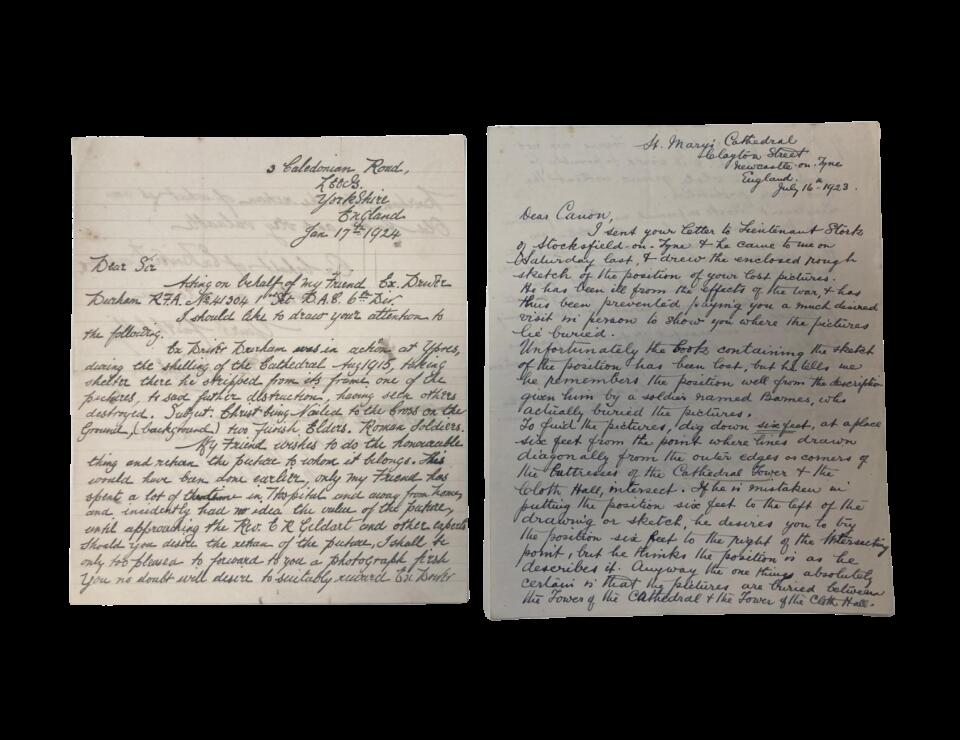 3 Caledonian Road,
Leeds.
Yorkshire
England
Jan 17th 1924
Dear Sir
Acting on behalf of my Friend Ex. Driver
Durham R.F.A. No 41304 1st Sec D.A.C. 6th Div.
I should like to draw your attention to
the following.
Ex Driver Durham was in action at Ypres,
during the shelling of the Cathedral Aug 1915, taking
shelter there he stripped from its frame one of the
pictures, to said further distruction, having seen others
destroyed. Subject. Christ being Nailed to the Cross on the
Ground, (background) two Jewish Elders. Roman Soldiers.
My Friend wishes to do the honourable
thing and return the picture to whom it belongs. This
would have been done earlier, only my Friend has
spent a lot of in Hospital and away from home,
and incidently had no idea the value of the picture,
until approaching the Rev. E R Gildart and other experts
should you desire the return of the picture, I shall be
only too pleased to forward to you a photograph first
You no doubt will desire to suitably reward Ex Driver
St. Mary's Cathedral
Clayton Street
Newcastle-on-Tyne
England.
July 16th 1923.
Dear Canon,
I sent your letter to Lieutenant Stork
of Stocksfield-on-Tyne & he came to me on
Saturday last, & drew the enclosed rough
sketch of the position of your lost pictures.
He has been ill from the effects of the war, & has
thus been prevented paying you a much desired
visit in person to show you where the pictures
lie buried.
Unfortunately the book containing the sketch
of the position has been lost, but he tells me
he remembers the position well from the description
given him by a soldier named Barnes, who
actually buried the pictures.
To find the pictures, dig down six feet, at a place
six feet from the point where lines drawn
diagonally from the outer edges or corners of
the buttresses of the Cathedral Tower & the
Cloth Hall, intersect. If he is mistaken in
putting the position six feet to the left of the
drawing or sketch, he desires you to try
the position six feet to the right of the intersecting
point, but he thinks the position is as he
describes it. Anyway the one thing absolutely
certain is that the pictures are buried between
the Tower of the Cathedral & the Tower of the Cloth Hall.